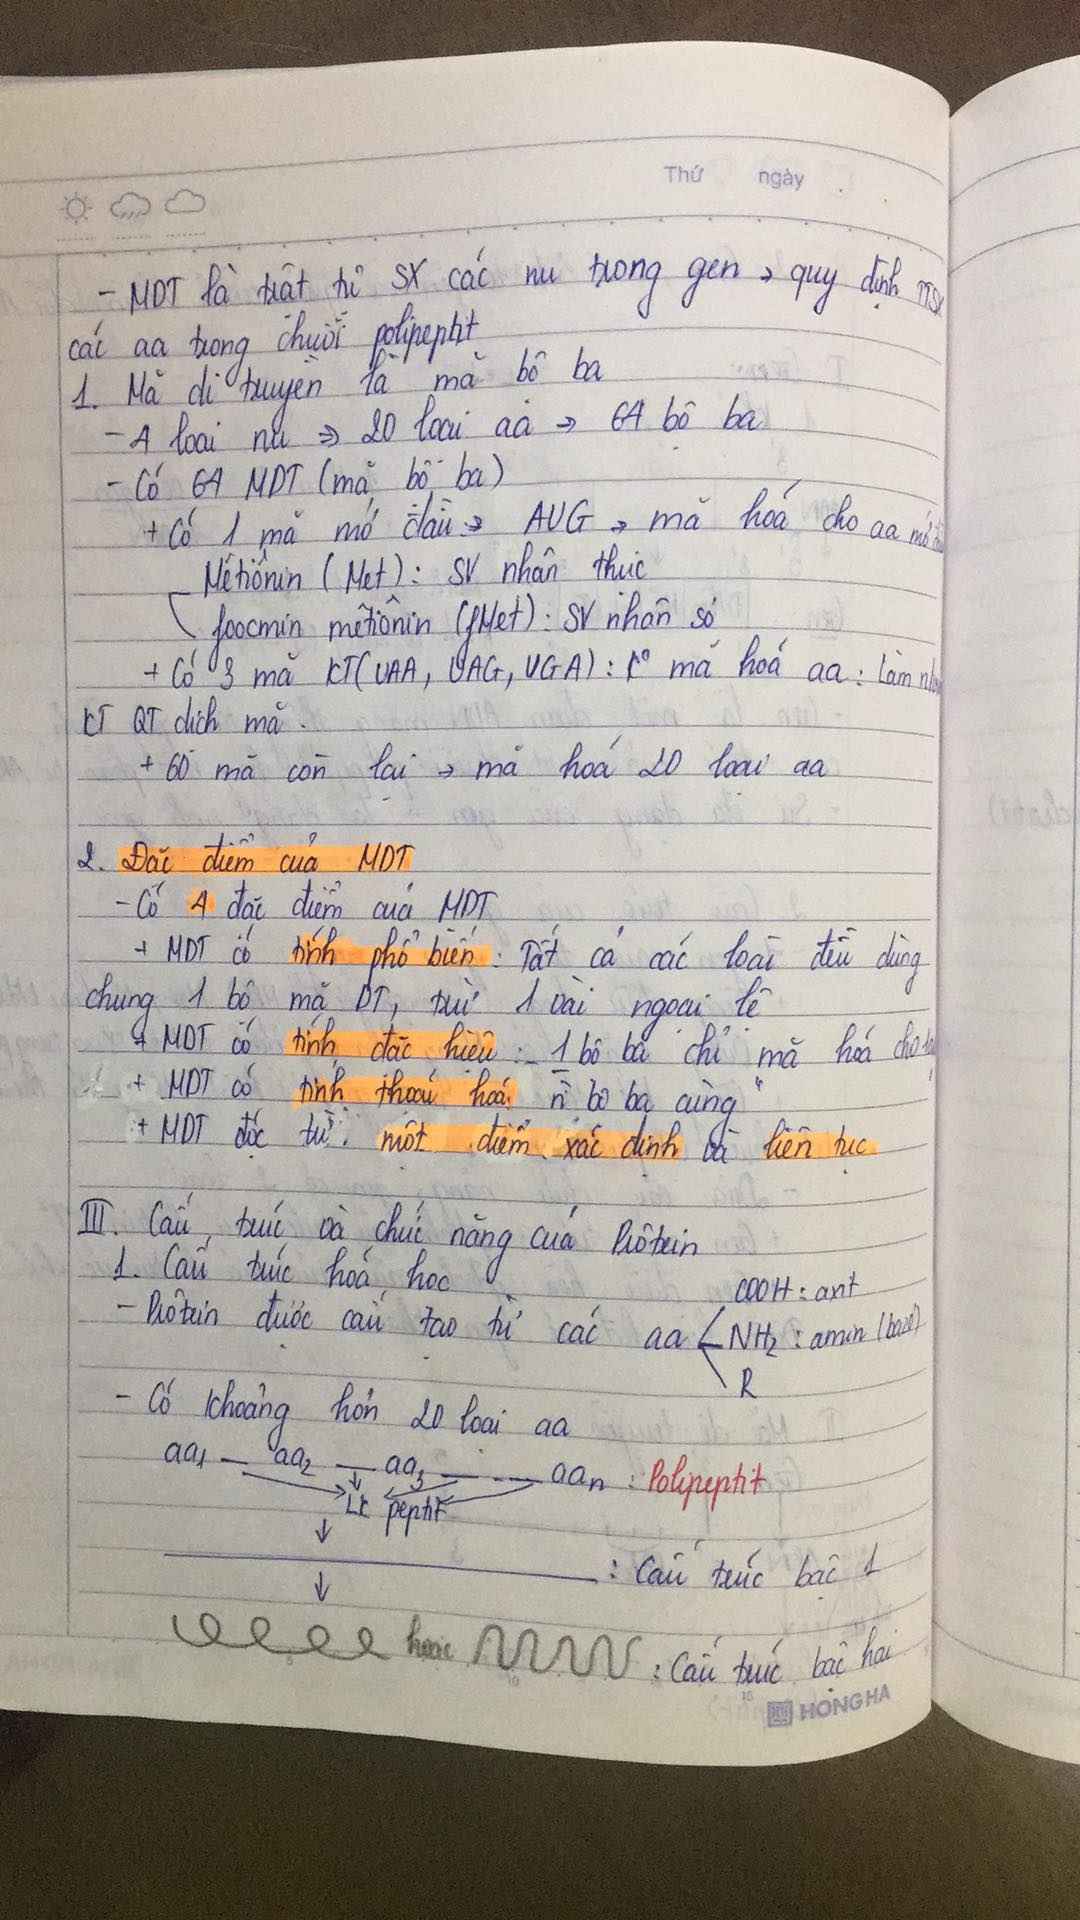 Thứ ngày
- MDT là trật tự SX các nu trong gen → quy định TTSX
các aa trong chuỗi polipeptit
1. Mã di truyền là mã bộ ba
- 4 loại nu ⇒ 20 loại aa → 64 bộ ba
- Có 64 MDT (mã bộ ba)
+ Có 1 mã mở đầu → AUG → mã hoá cho aa mở
Mêtiônin (Met): SV nhân thực
foocmin mêtiônin (fMet): SV nhân sơ
+ Có 3 mã KT (UAA, UAG, UGA): K° mã hoá aa: Làm
KT QT dịch mã.
+ 60 mã còn lại → mã hoá 20 loại aa
2. Đặc điểm của MDT
- Có 4 đặc điểm của MDT
+ MDT có tính phổ biến: Tất cả các loài đều dùng
chung 1 bộ mã DT, trừ 1 vài ngoại lệ
+ MDT có tính đặc hiệu: 1 bộ ba chỉ mã hoá cho
+ MDT có tính thoái hoá: n̄ bộ ba cùng "
+ MDT đọc từ: một điểm xác định và liên tục
III. Cấu trúc và chức năng của Prôtein
1. Cấu trúc hoá học
COOH: axt
- Prôtein được cấu tạo từ các aa NH2: amin (bazơ)
R
- Có khoảng hơn 20 loại aa
aa1 — aa2 — aa3 — — aan: Polipeptit
LK peptit
: Cấu trúc bậc 1
hoặc : Cấu trúc bậc hai
HONG HA